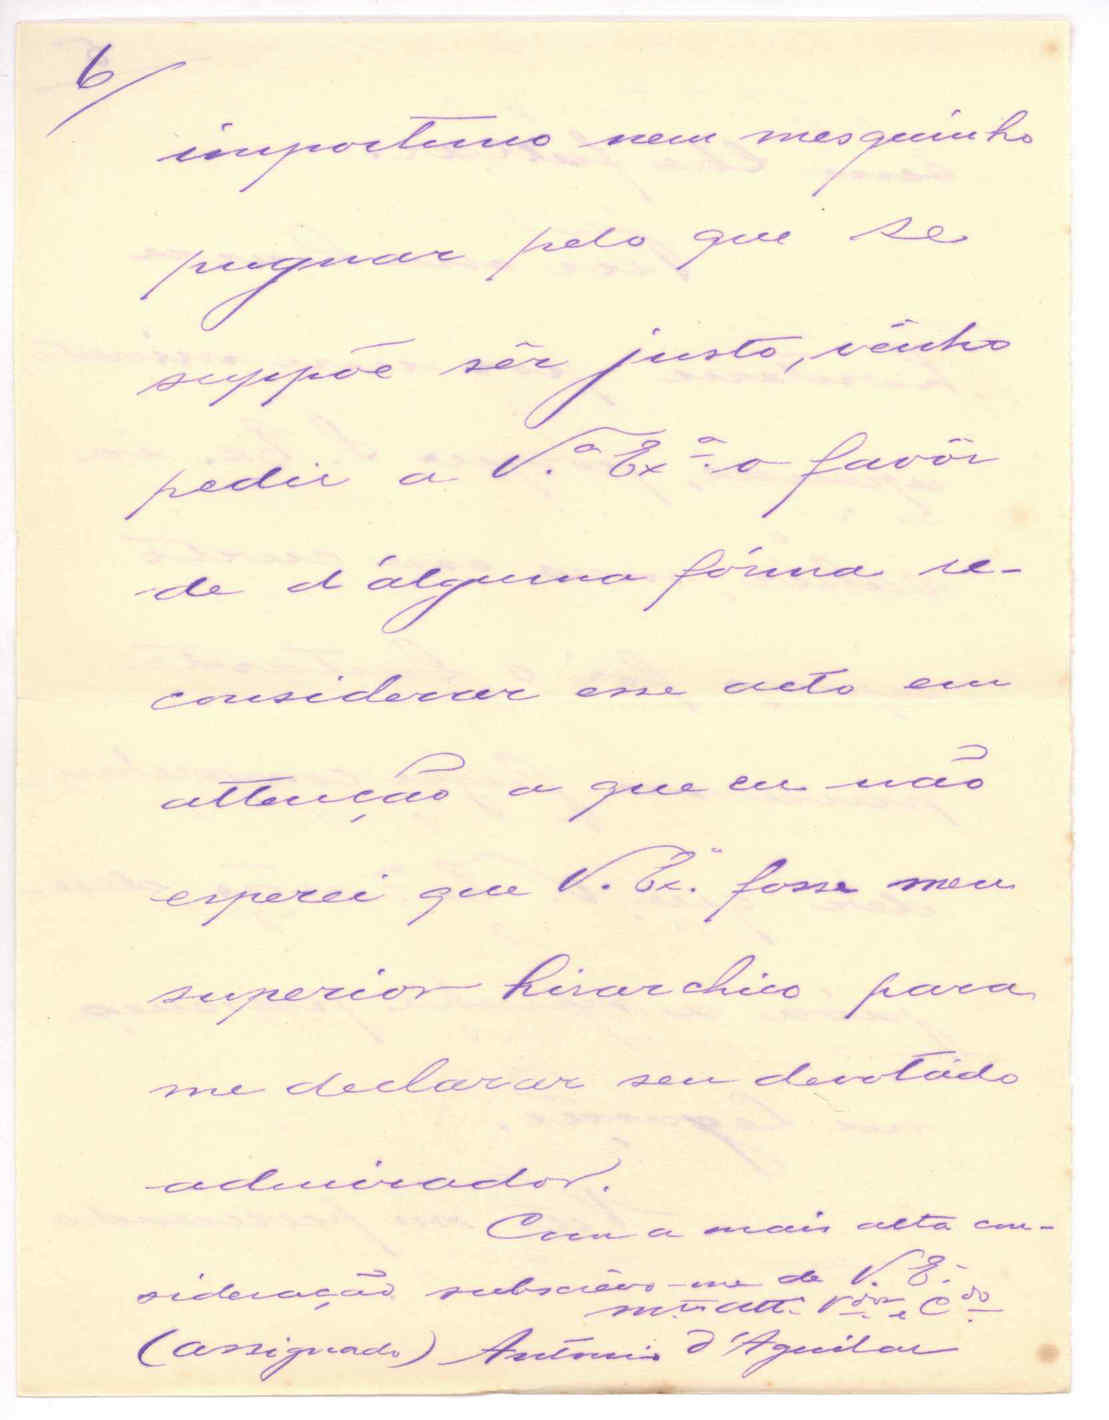 6/
importuno nem mesquinho
pugnar pelo que se
suppõe sêr justo, vênho
pedir a V.ª Ex.ª o favôr
de d'álguma fórma re-
considerar esse acto em
attenção a que eu não
esperei que V. Ex.ª fosse meu
superior hirarchico para
me declarar seu devotádo
admirador.
Com a mais alta con-
sideração subscrevo-me de V. E.ª
m.to att.º V.dor e C.do
(assignado) António d'Aguilar